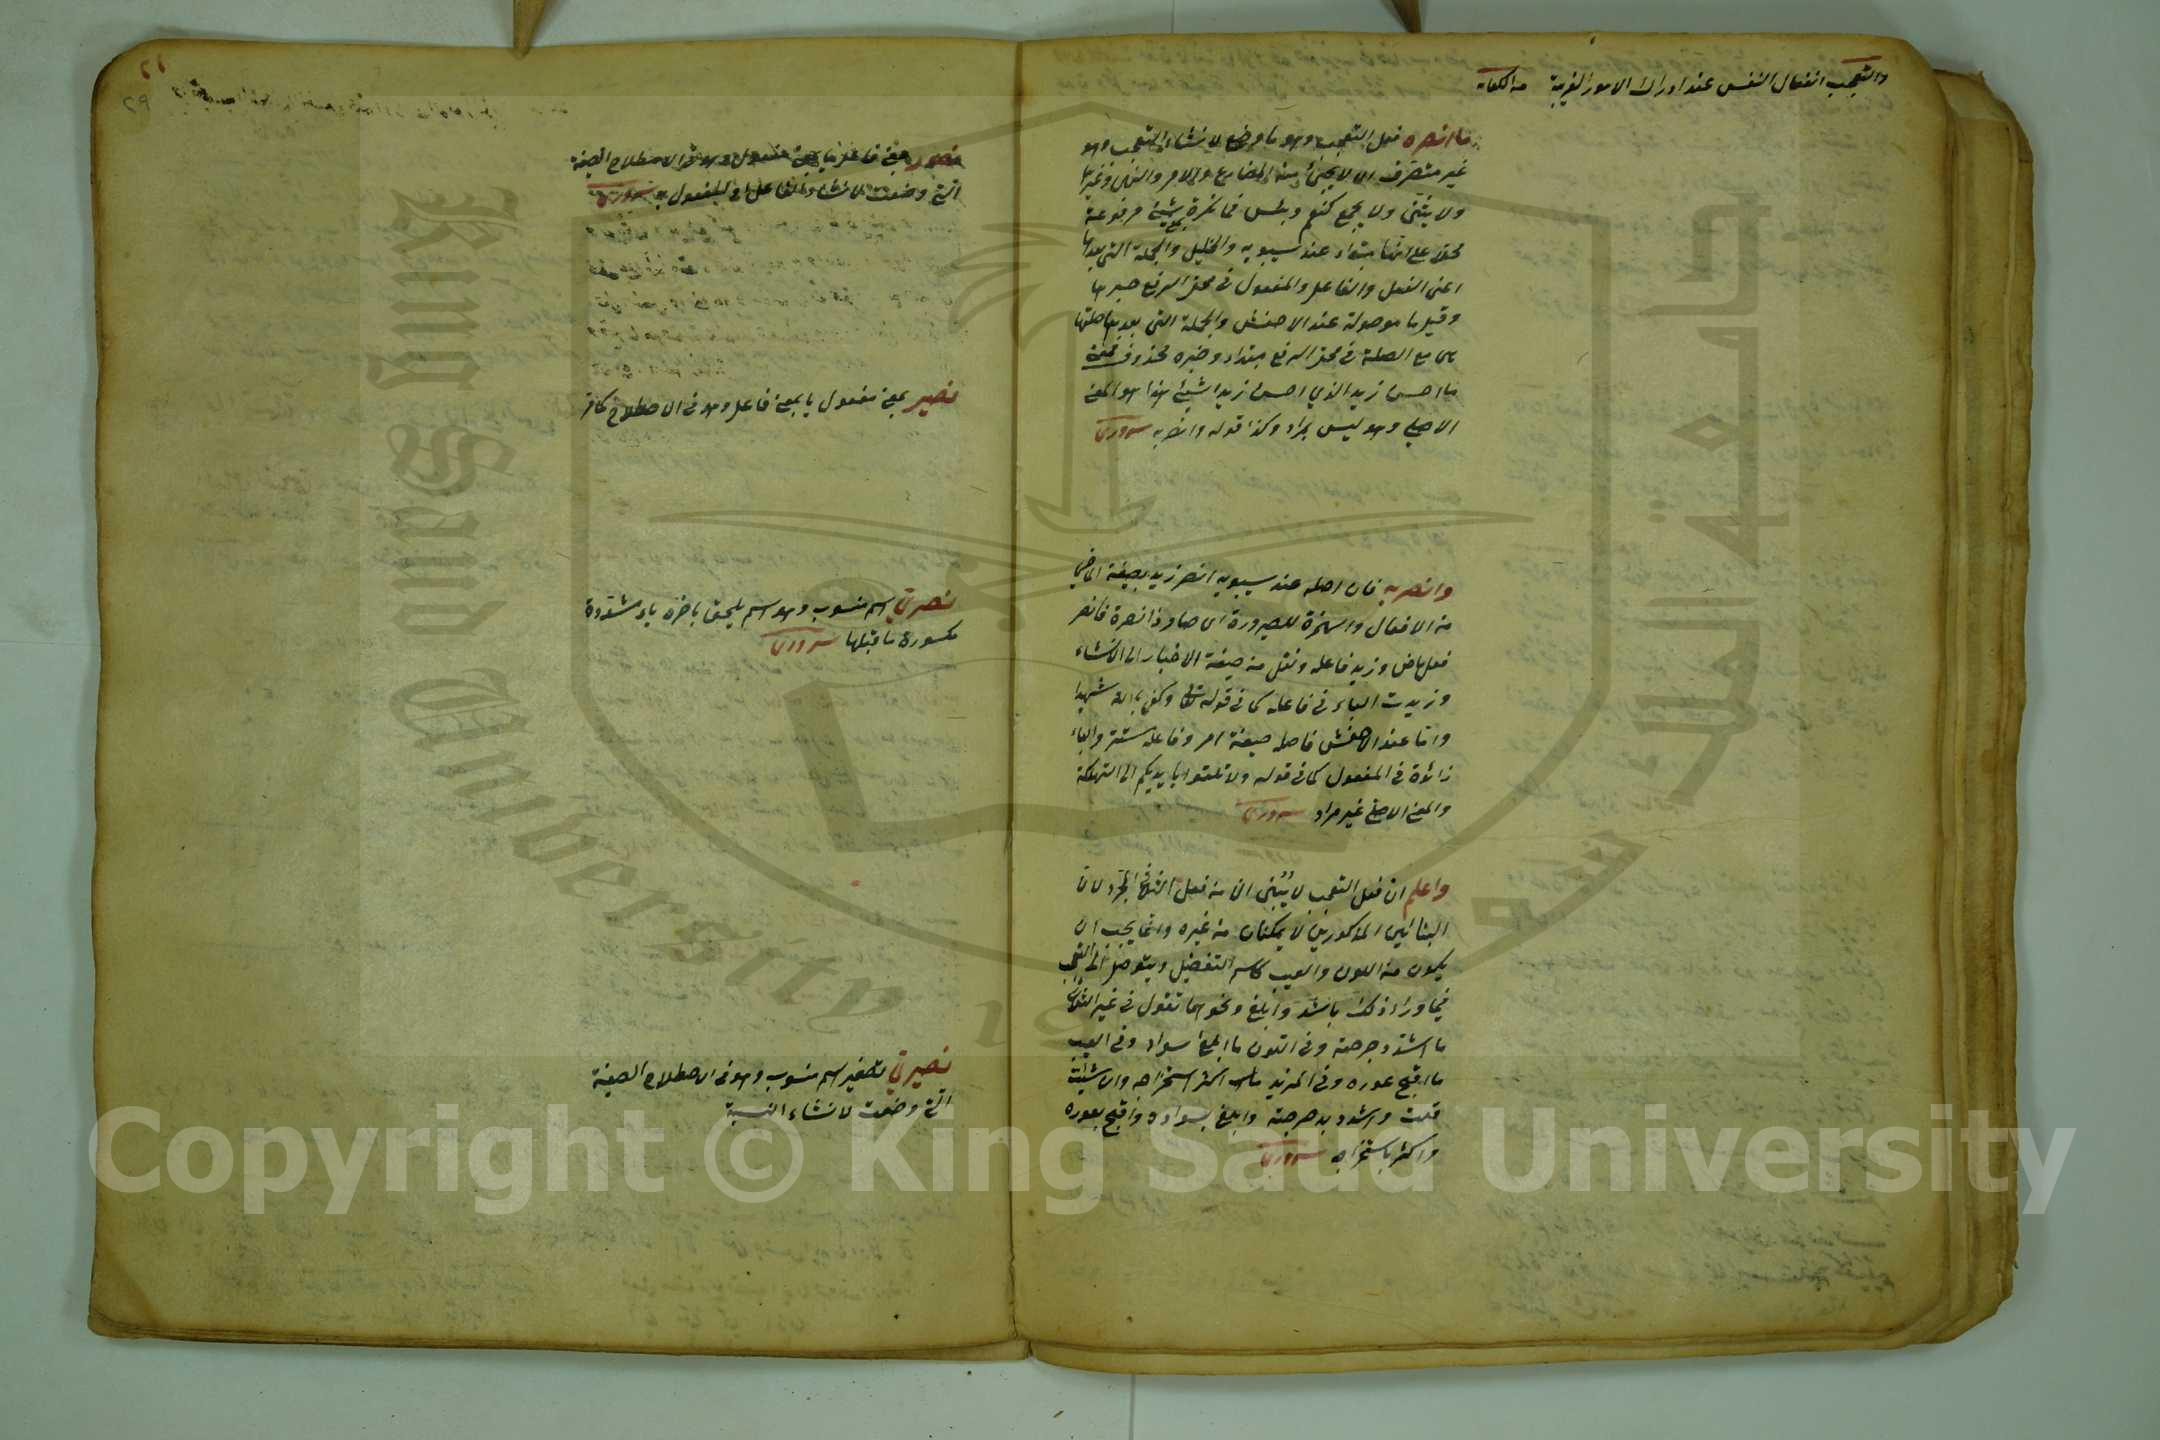 والتعجب انفعال النفس عند ادراك الامور الغريبة
ما انصره فعل التعجب وهو ما وضع لانشاء التعجب وهو
غير متصرف اى لا يجئ منه المضارع والامر والنهى وغيرها
ولا يثنى ولا يجمع كنعم وبئس فما نكرة بمعنى شيئ مرفوعة
محلا على انها مبتداء عند سيبويه والخليل والجملة التى بعدها
اعنى الفعل والفاعل والمفعول فى محل الرفع خبرها
وقيل ما موصولة عند الاخفش والجملة التى بعدها صلتها
مع الصلة فى محل الرفع مبتداء وخبره محذوف فمعنى
ما احسن زيد الذي احسن زيدا شيئ هذا هو المعنى
الاصلى وهو ليس بمراد وكذا قوله وانصر به سرورى
وانصر به فان اصله عند سيبويه انصر زيد بصيغة الماضى
من الافعال والهمزة للصيرورة اى صار ذا نصرة فانصر
فعل ماض وزيد فاعله ونقل من صيغة الاخبار الى الانشاء
وزيدت الباء فى فاعله كما فى قوله تعالى وكفى بالله شهيدا
واما عند الاخفش فاصله صيغة امر وفاعله مستتر والباء
زائدة فى المفعول كما فى قوله ولا تلقوا بايديكم الى التهلكة
والمعنى الاصلى غير مراد سرورى
واعلم ان فعل التعجب لا يبنى الا من فعل الثلاثى المجرد لان
البنائين المذكورين لا يمكنان من غيره وانما يجب ان
يكون من اللون والعيب كاسم التفضيل ويتوصل الى التعجب
فيما وراء ذلك باشد وابلغ ونحوهما تقول فى غير الثلاثى
ما اشد دحرجته وفى اللون ما ابلغ سواده وفى العيب
ما اقبح عوره وفى المزيد ما اكثر استخراجه وان شئت
قلت واشدد بدحرجته وابلغ بسواده واقبح بعوره
واكثر باستخراجه سرورى
نصور بمعنى فاعل يا بمعنى مفعول وهو فى الاصطلاح الصيغة
التى وضعت لانشاء الفاعل او المفعول به سرورى
نصير بمعنى مفعول يا بمعنى فاعل وهو فى الاصطلاح كما مر
نصرى اسم منسوب وهو اسم يلحق باخره ياء مشددة
مكسورة ما قبلها سرورى
نصيرى تصغير اسم منسوب وهو فى الاصطلاح الصيغة
التى وضعت لانشاء النسبة
Copyright © King Saud University
King Saud University